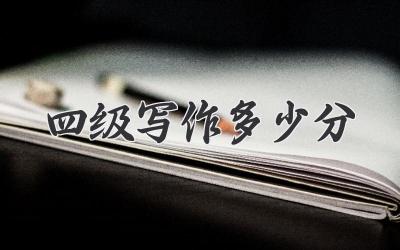 四级写作多少分